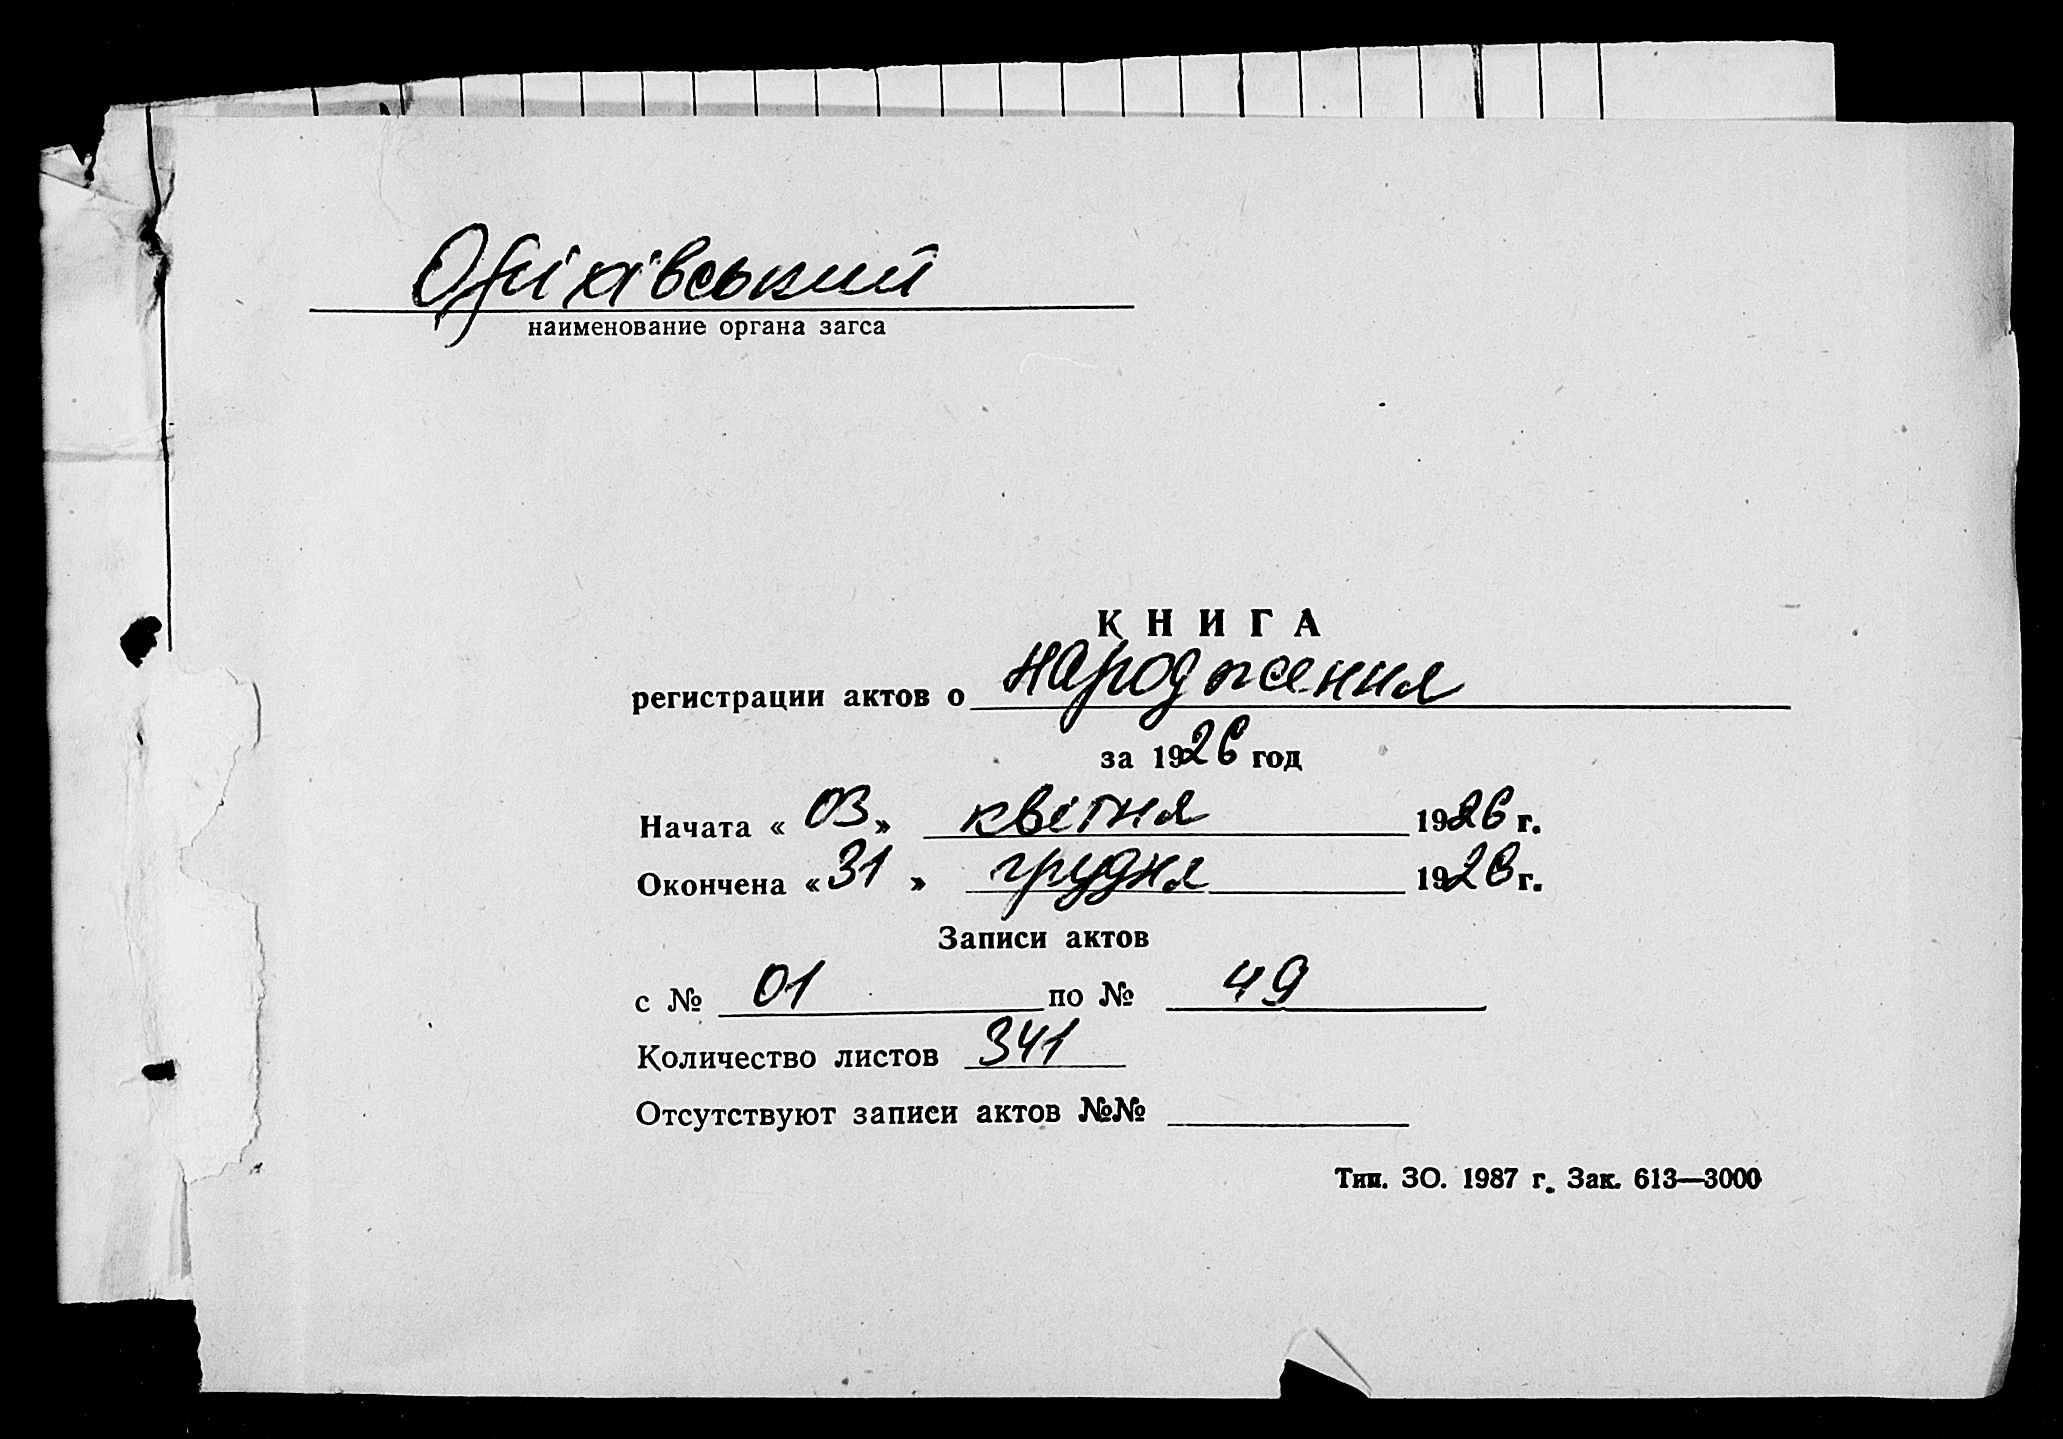 Оріхівський
наименование органа загса
КНИГА
регистрации актов о народження
за 1926 год
Начата « 03 » квітня 1926 г.
Окончена « 31 » грудня 1926 г.
Записи актов
с № 01 по № 49
Количество листов 341
Отсутствуют записи актов №№
Тип. ЗО. 1987 г. Зак. 613—3000